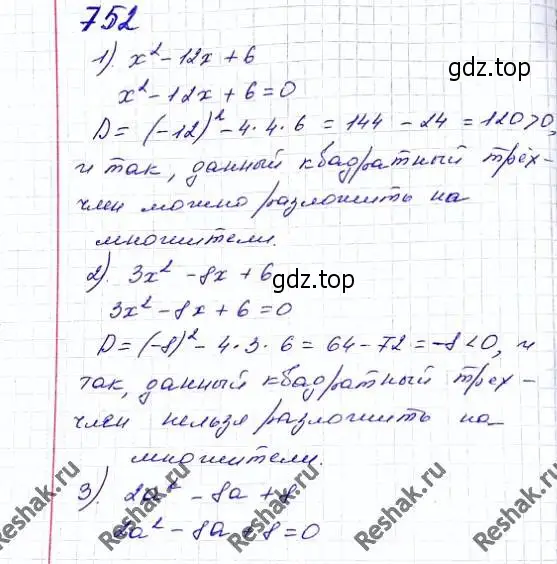 752
1). x² - 12x + 6
гдз.top
x² - 12x + 6 = 0
D = (-12)² - 4·4·6 = 144 - 24 = 120 > 0,
и так, данный квадратный трёх-
член можно разложить на
множители.
2). 3x² - 8x + 6
гдз.top
3x² - 8x + 6 = 0
D = (-8)² - 4·3·6 = 64 - 72 = -8 < 0, и
так, данный квадратный трех-
член нельзя разложить на
множители.
3). 2a² - 8a + 8
2a² - 8a + 8 = 0
Reshak.ru
Reshak.ru
Reshak.ru
Reshak.ru